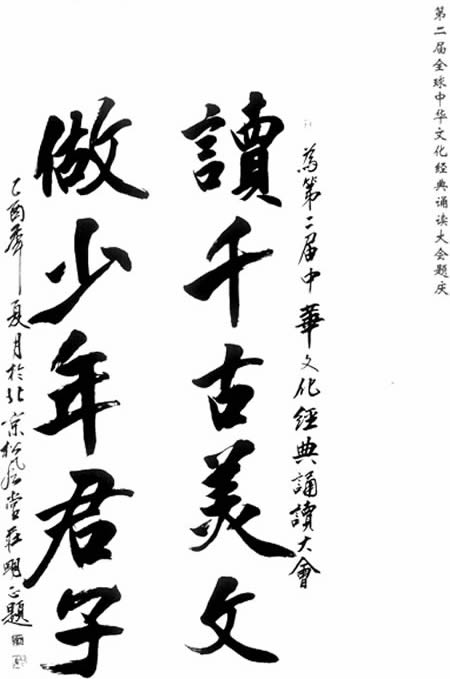 第二届全球中华文化经典诵读大会题庆
為第二届中華文化經典誦讀大會
讀千古美文
做少年君子
乙酉年夏月於北京松風堂莊明正題